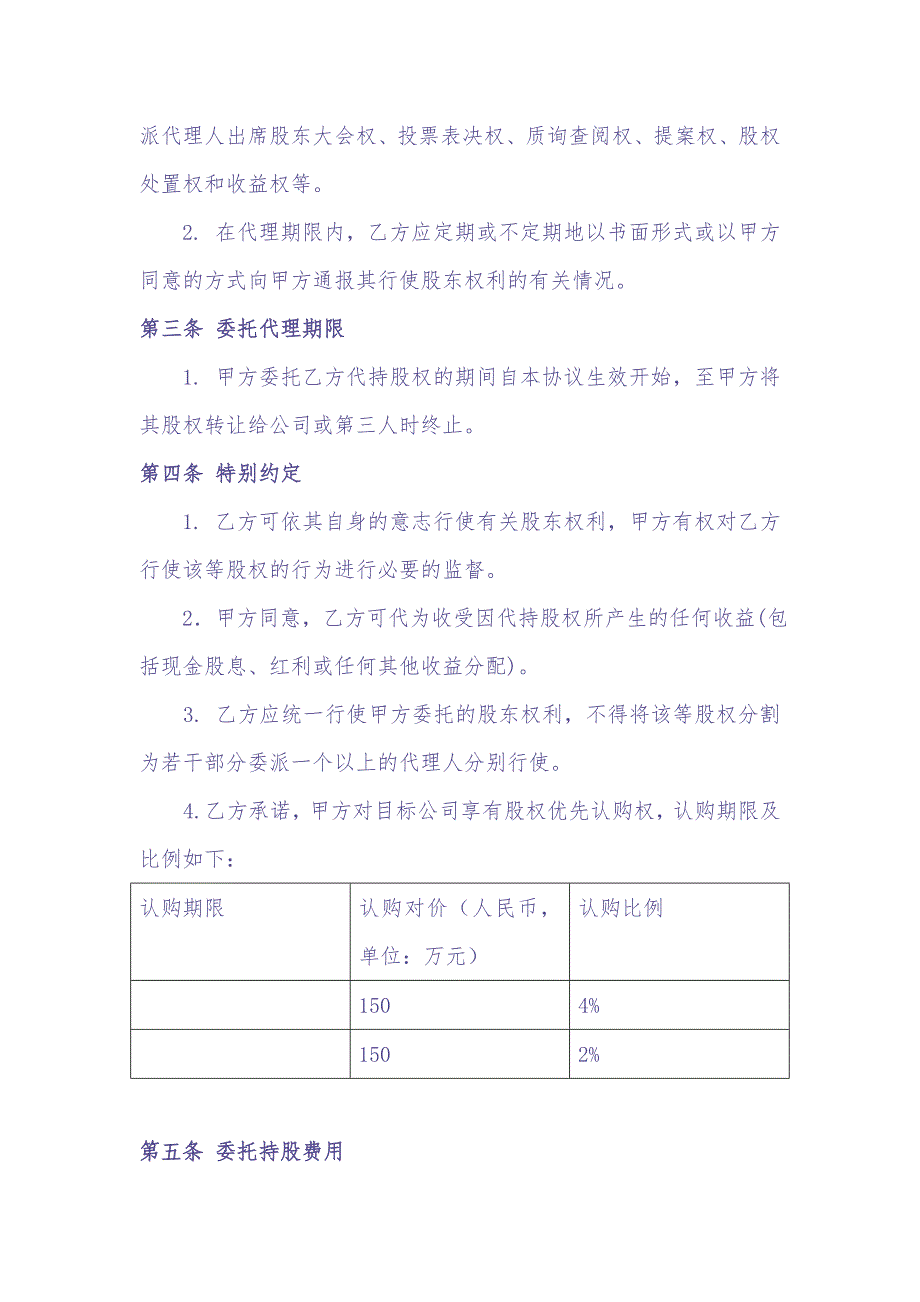 派代理人出席股东大会权、投票表决权、质询查阅权、提案权、股权
处置权和收益权等。
2. 在代理期限内，乙方应定期或不定期地以书面形式或以甲方
同意的方式向甲方通报其行使股东权利的有关情况。
第三条 委托代理期限
1. 甲方委托乙方代持股权的期间自本协议生效开始，至甲方将
其股权转让给公司或第三人时终止。
第四条 特别约定
1. 乙方可依其自身的意志行使有关股东权利，甲方有权对乙方
行使该等股权的行为进行必要的监督。
2. 甲方同意，乙方可代为收受因代持股权所产生的任何收益(包
括现金股息、红利或任何其他收益分配)。
3. 乙方应统一行使甲方委托的股东权利，不得将该等股权分割
为若干部分委派一个以上的代理人分别行使。
4.乙方承诺，甲方对目标公司享有股权优先认购权，认购期限及
比例如下：
认购期限 认购对价（人民币， 认购比例
单位：万元）
150 4%
150 2%
第五条 委托持股费用